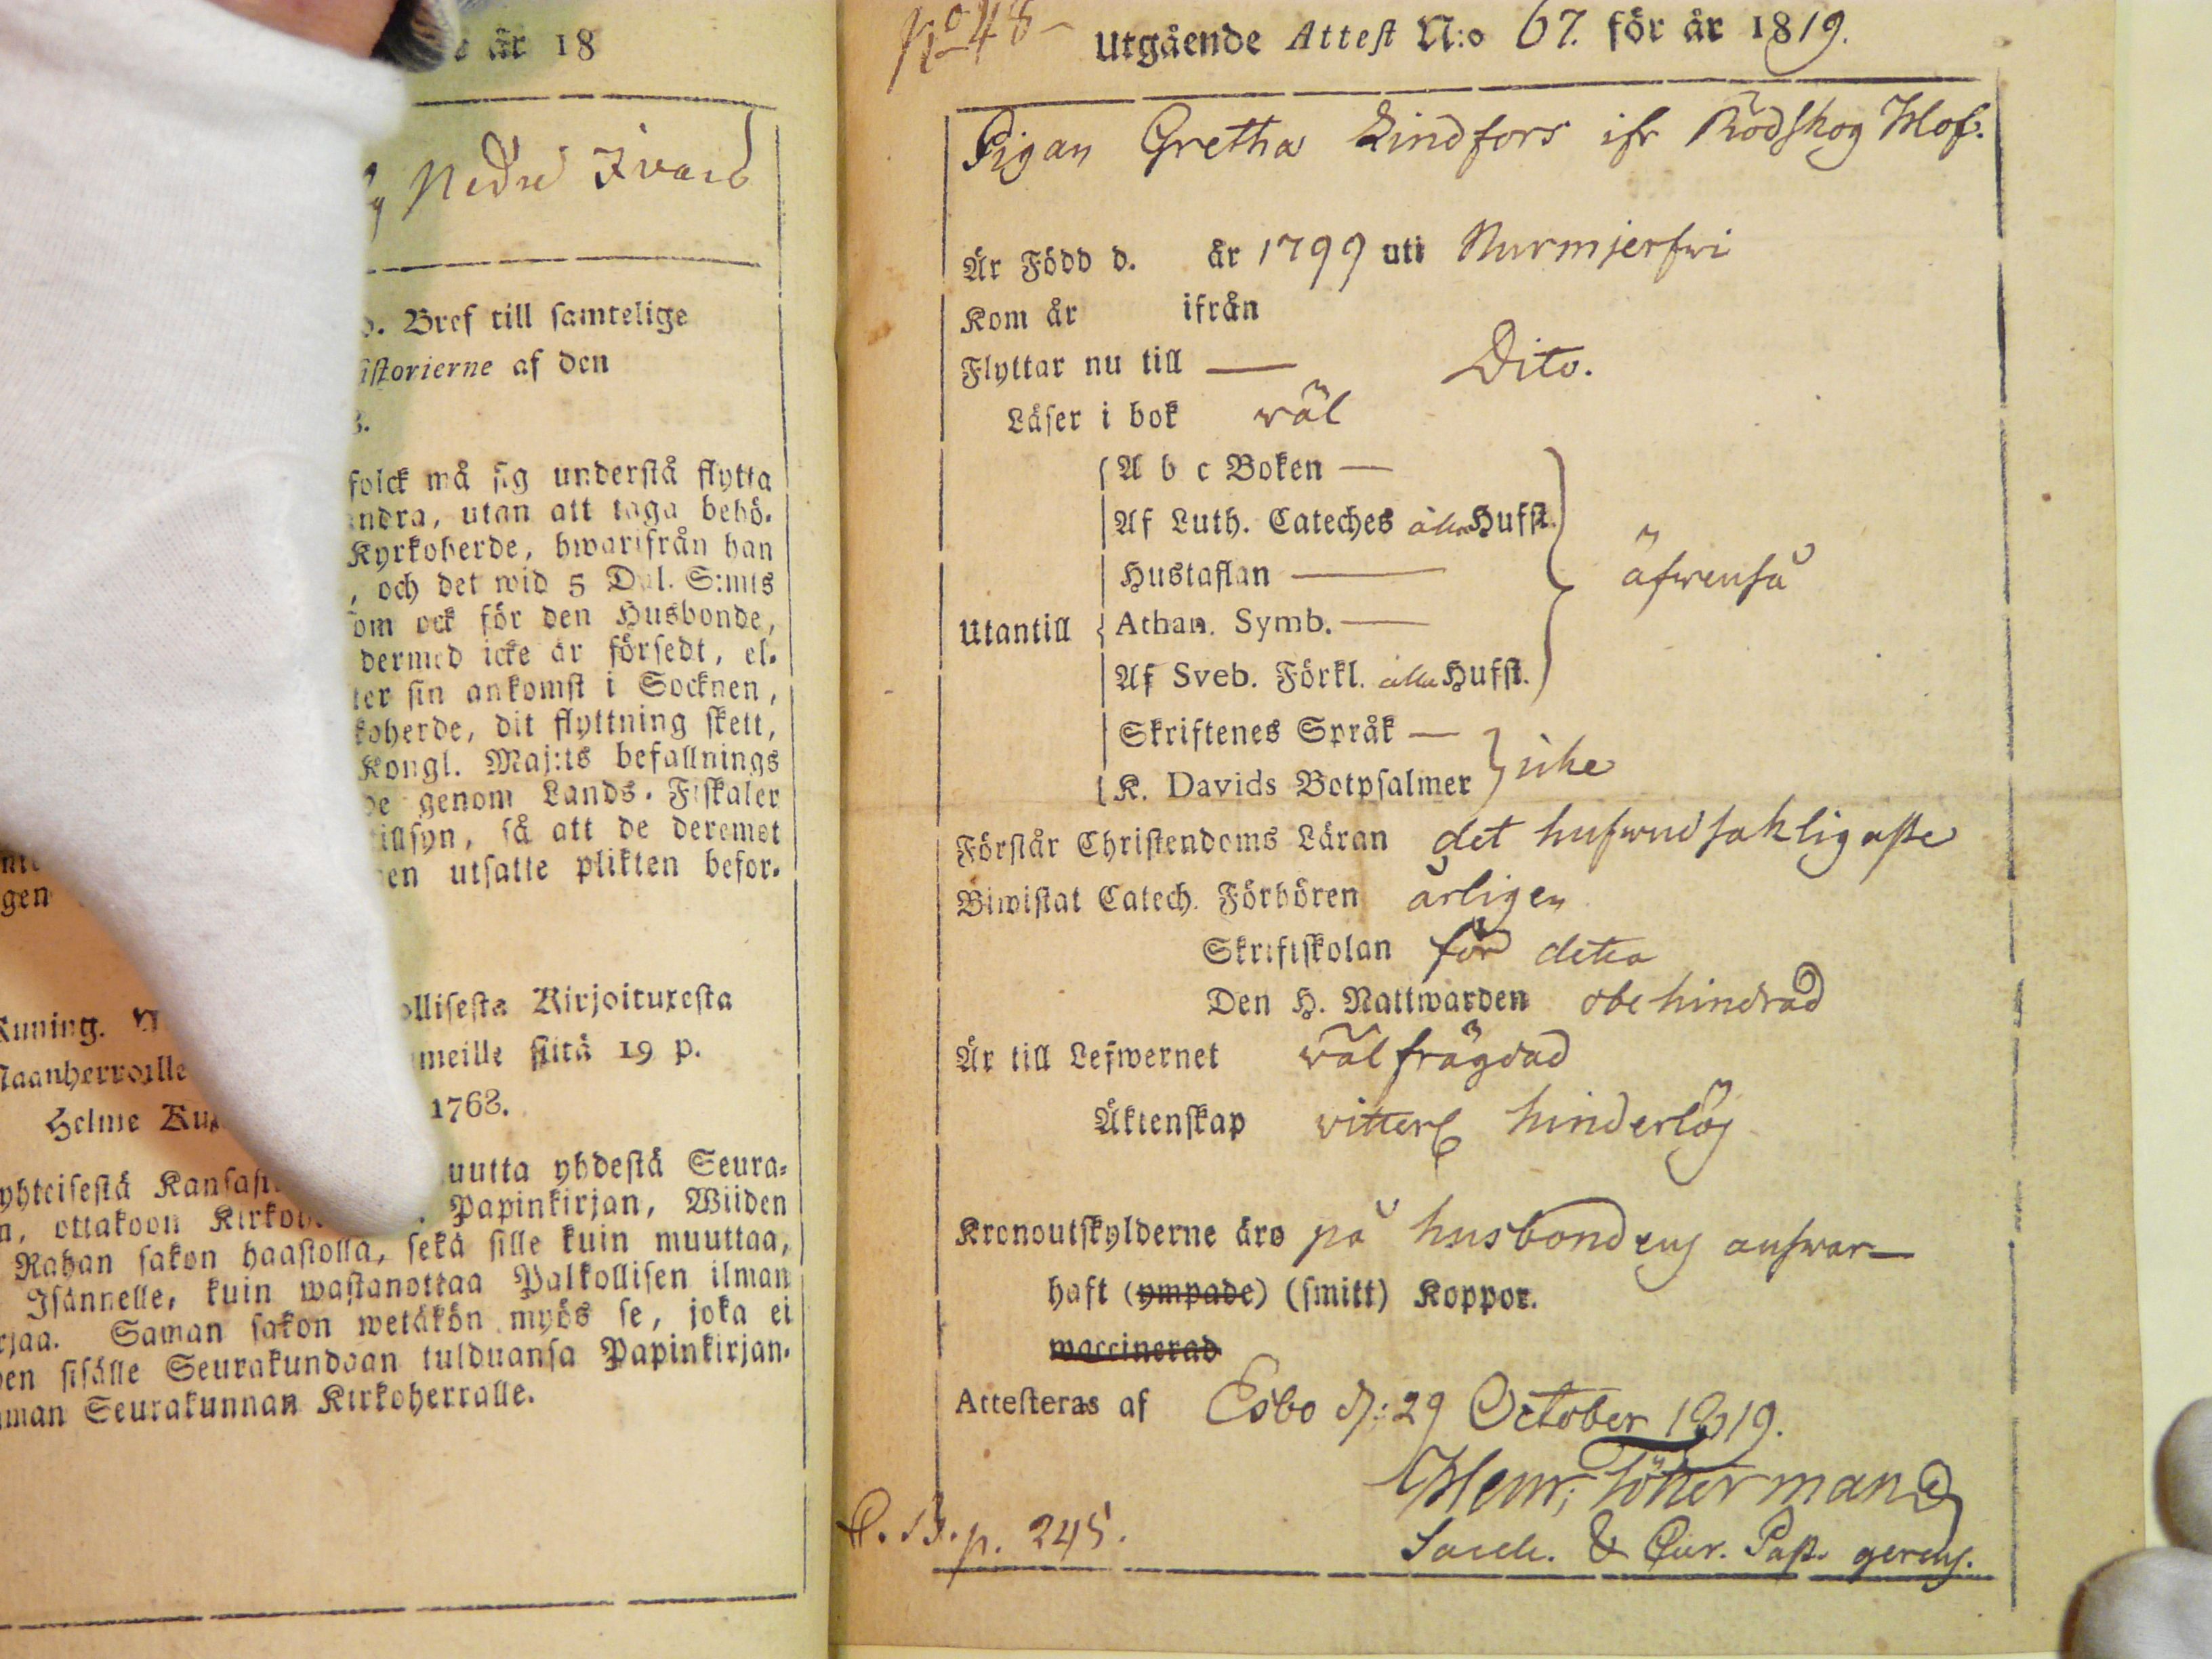 e år 18
Nedre Ivars
d. Bref till samtelige
istorierne af den
folck må sig understå flytta
andra, utan att taga behö-
Kyrkoherde, hwarifrån han
, och det wid 5 Dal. S:mts
om ock för den Husbonde,
dermed icke är försedt, el-
ter sin ankomst i Socknen,
koherde, dit flyttning skett,
Kongl. Maj:ts befallnings
genom Lands-Fiskaler
tillsyn, så att de deremot
en utsatte plikten befor-
gen
Kuning.
ollisesta Kirjoituxesta
Maanherroille
meille siitä 19 p.
Helme
1763.
yhteisestä
uutta yhdestä Seura-
n, ottakoon
Papinkirjan, Wiiden
Rahan sakon haastolla, sekä sille kuin muuttaa,
Isännelle, kuin wastanottaa Palkollisen ilman
rjaa. Saman sakon wetäkön myös se, joka ei
en sisälle Seurakundaan tulduansa Papinkirjan-
man Seurakunnan Kirkoherralle.
No 48
Utgående Attest N:o 67. för år 1819.
Pigan Gretha Lindfors ifr Rödskog Mof.
Är Född d. år 1799 uti Nurmjerfwi
Kom år ifrån
Flyttar nu till — Dito.
Läser i bok wäl
A b c Boken —
Af Luth. Cateches alla Hufst.
Hustaflan — äfwenså
Utantill Athan. Symb. —
Af Sveb. Förkl. alla Hufst.
Skriftenes Språk —
K. Davids Botpsalmer icke
Förstår Christendoms Läran det hufwudsakligaste
Biwistat Catech. Förhören årligen
Skriftskolan för detta
Den H. Nattwarden obehindrad
Är till Lefwernet wälfrägdad
Äktenskap witterl. hinderlös
Kronoutskylderne äro på husbondens answar—
haft (ympade) (smitt) Koppor.
waccinerad
Attesteras af Esbo d: 29 October 1819.
Henr: Töttermane
C. B. p. 245.
Sacell. & Cur. Past. gerens.